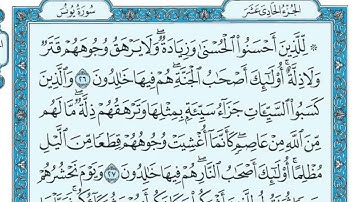 سُورَةُ يُونُسَ
الجُزْءُ الحَادِي عَشَرَ
۞ لِّلَّذِينَ أَحْسَنُوا۟ ٱلْحُسْنَىٰ وَزِيَادَةٌ ۖ وَلَا يَرْهَقُ وُجُوهَهُمْ قَتَرٌ
وَلَا ذِلَّةٌ ۚ أُو۟لَٰٓئِكَ أَصْحَٰبُ ٱلْجَنَّةِ ۖ هُمْ فِيهَا خَٰلِدُونَ ٢٦ وَٱلَّذِينَ
كَسَبُوا۟ ٱلسَّيِّـَٔاتِ جَزَآءُ سَيِّئَةٍۭ بِمِثْلِهَا وَتَرْهَقُهُمْ ذِلَّةٌ ۖ مَّا لَهُم
مِّنَ ٱللَّهِ مِنْ عَاصِمٍ ۖ كَأَنَّمَآ أُغْشِيَتْ وُجُوهُهُمْ قِطَعًا مِّنَ ٱلَّيْلِ
مُظْلِمًا ۚ أُو۟لَٰٓئِكَ أَصْحَٰبُ ٱلنَّارِ ۖ هُمْ فِيهَا خَٰلِدُونَ ٢٧ وَيَوْمَ نَحْشُرُهُمْ